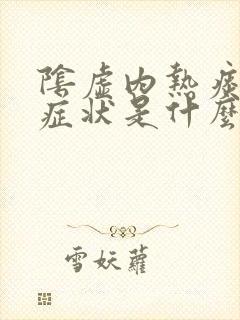 陰虛內熱症
症状是什麼
雪妖蘿